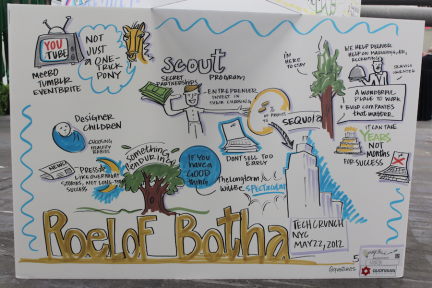 YOU
TUBE
MEEBO
TUMBLR
EVENTBRITE
NOT
JUST
A
ONE
TRICK
PONY
SCOUT
SECRET PROGRAM,
PARTNERSHIPS
ENTREPRENEUR
INVEST IN
THEIR CHOOSING
I'M
HERE
TO STAY
WE HELP
RECRUITING
SERVICE
A WONDERFUL
PLACE TO WORK
BUILD COMPANIES
THAT MATTER
IT CAN TAKE
YEARS
NOT
MONTHS
FOR SUCCESS
SEQUOIA
DESIGNER
CHILDREN
NEWS
PRESS
LIKE OVERNIGHT
STORIES, NOT LONG-TERM
SUCCESS
Something
ENDURING
IF YOU
HAVE A
GOOD
THING
DON'T SELL TOO
EARLY
The long term
will be spectacular
TECHCRUNCH
NYC
MAY 22, 2012
Roelof Botha